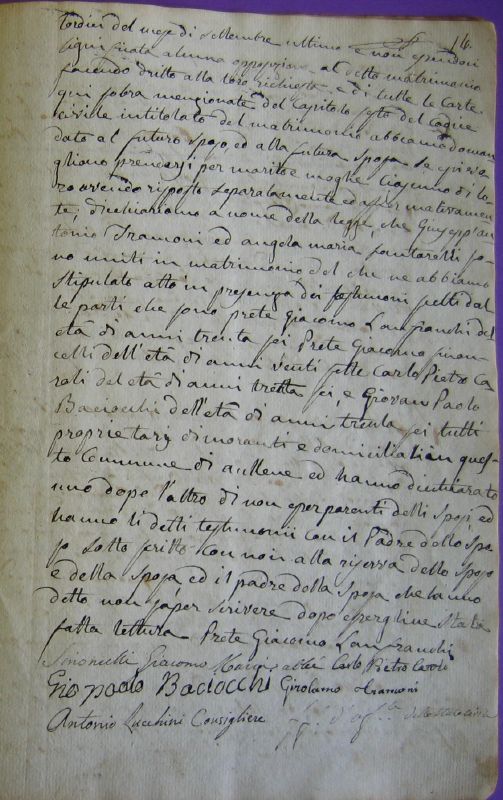 16.
tordici del mese di settembre ultimo e non essendosi
significata alcuna opposizione al detto matrimonio
facendo dritto alla loro richiesta e di tutte le carte
qui sopra menzionate del Capitolo sesto del Codice
civile intitolato del matrimonio abbiamo doman
dato al futuro sposo, ed alla futura sposa se essi vo
gliono prendersi per marito e moglie Ciascuno di lo
ro avendo risposto separatamente ed affermativamen
te, dichiariamo a nome della legge, che Giusepp'an
tonio Tramoni ed angela maria Santarelli so
no uniti in matrimonio del che ne abbiamo
stipulato atto in presenza dei testimoni scelti dal
le parti che sono prete Giacomo Lanfranchi del
età di anni trenta sei Prete Giacomo simon
celli dell'età di anni venti sette Carlo Pietro Ca
roli del età di anni trenta sei e Giovan Paolo
Baciocchi dell'età di anni trenta sei tutti
proprietarj dimoranti e domiciliati in ques
to Commune di aullene ed hanno dichiarato
uno dopo l'altro di non esser parenti delli sposi ed
hanno li detti testimoni con il Padre dello spo
so sotto scritto con noi alla riserva dello sposo
e della sposa ed il padre della sposa che hanno
detto non saper scrivere dopo essergline stata
fatta lettura Prete Giacomo Lanfranchi
Simoncelli Giacomo Carlo Pietro Caroli
Gio paolo Baciocchi Girolamo tramoni
Antonio Lucchini Consigliere